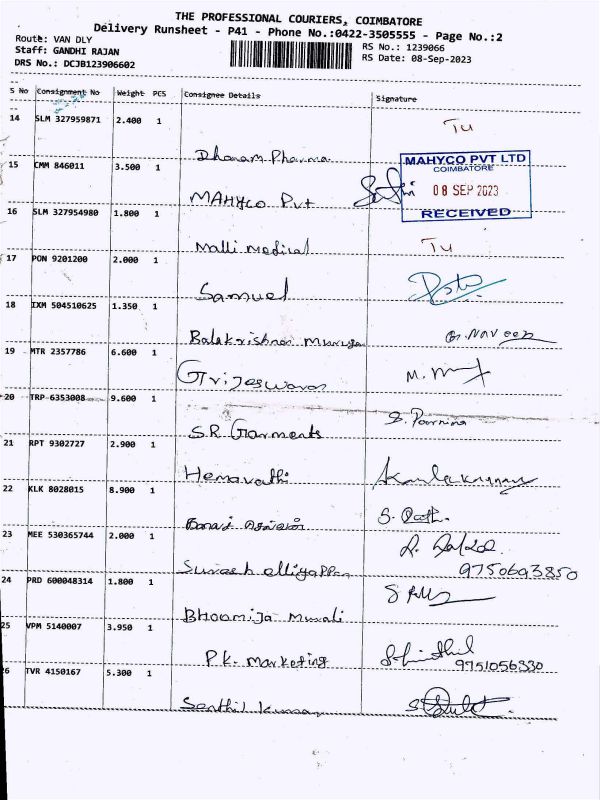 THE PROFESSIONAL COURIERS, COIMBATORE
Delivery Runsheet - P41 - Phone No.:0422-3505555 - Page No.:2
Route: VAN DLY
Staff: GANDHI RAJAN
DRS No.: DCJB123906602
RS No.: 1239066
RS Date: 08-Sep-2023
S No Consignment No Weight PCS Consignee Details Signature
14 SLM 327959871 2.400 1
Dhanam Pharma
15 CMM 846011 3.500 1
MAHYCO Pvt
MAHYCO PVT LTD
COIMBATORE
08 SEP 2023
RECEIVED
16 SLM 327954980 1.800 1
Malli Medical
17 PON 9201200 2.000 1
Samuel
18 IXM 504510625 1.350 1
Balakrishnan
19 MTR 2357786 6.600 1
Grijeswaran
20 TRP 6353008 9.600 1
S.R. Garments S. Poornima
21 RPT 9302727 2.900 1
Hemavathi
22 KLK 8028015 8.900 1
23 MEE 530365744 2.000 1
Suresh
9750693850
24 PRD 600048314 1.800 1
Bhoomija Murali
25 VPM 5140007 3.950 1
P.K. Marketing
9751056330
26 TVR 4150167 5.300 1
Senthil Kumar